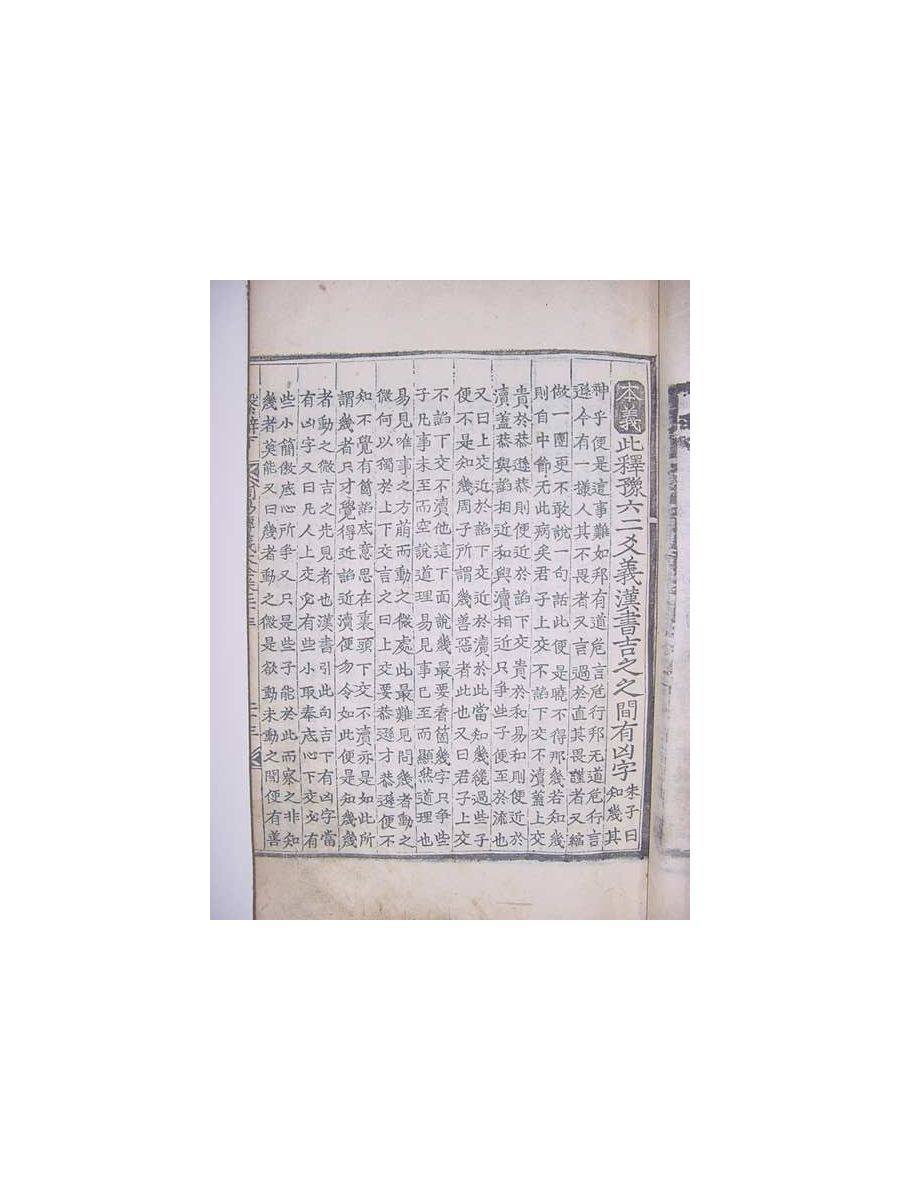 本義此釋豫六二爻義漢書吉之之間有凶字
朱子曰
知幾其
神乎便是這事難如邦有道危言危行邦无道危行言
遜今有一㨾人其不畏者又言過於直其畏謹者又縮
做一團更不敢說一句話此便是曉不得那幾若知幾
則自中節无此病矣君子上交不諂下交不瀆蓋上交
貴於恭遜恭則便近於諂下交貴於和易和則便近於
瀆蓋恭與諂相近和與瀆相近只争些子便至於流也
又曰上交近於諂下交近於瀆於此當知幾纔過些子
便不是知幾周子所謂幾善惡者此也又曰君子上交
不諂下交不瀆他這下面說幾最要看箇幾字只争些
子凡事未至而空說道理易見事已至而顯然道理也
易見唯事之方萌而動之微處此最難見問幾者動之
微何以獨於上下交言之曰上交要恭遜才恭遜便不
知不覺有箇諂底意思在裏頭下交不瀆亦是如此所
謂幾者只才覺得近諂近瀆便勿令如此便是知幾幾
者動之微吉之先見者也漢書引此向吉下有凶字當
有凶字又曰凡人上交必有些小取奉底心下交必有
些小簡傲底心所争又只是些子能於此而察之非知
幾者莫能又曰幾者動之微是欲動未動之間便有善
繫辭下